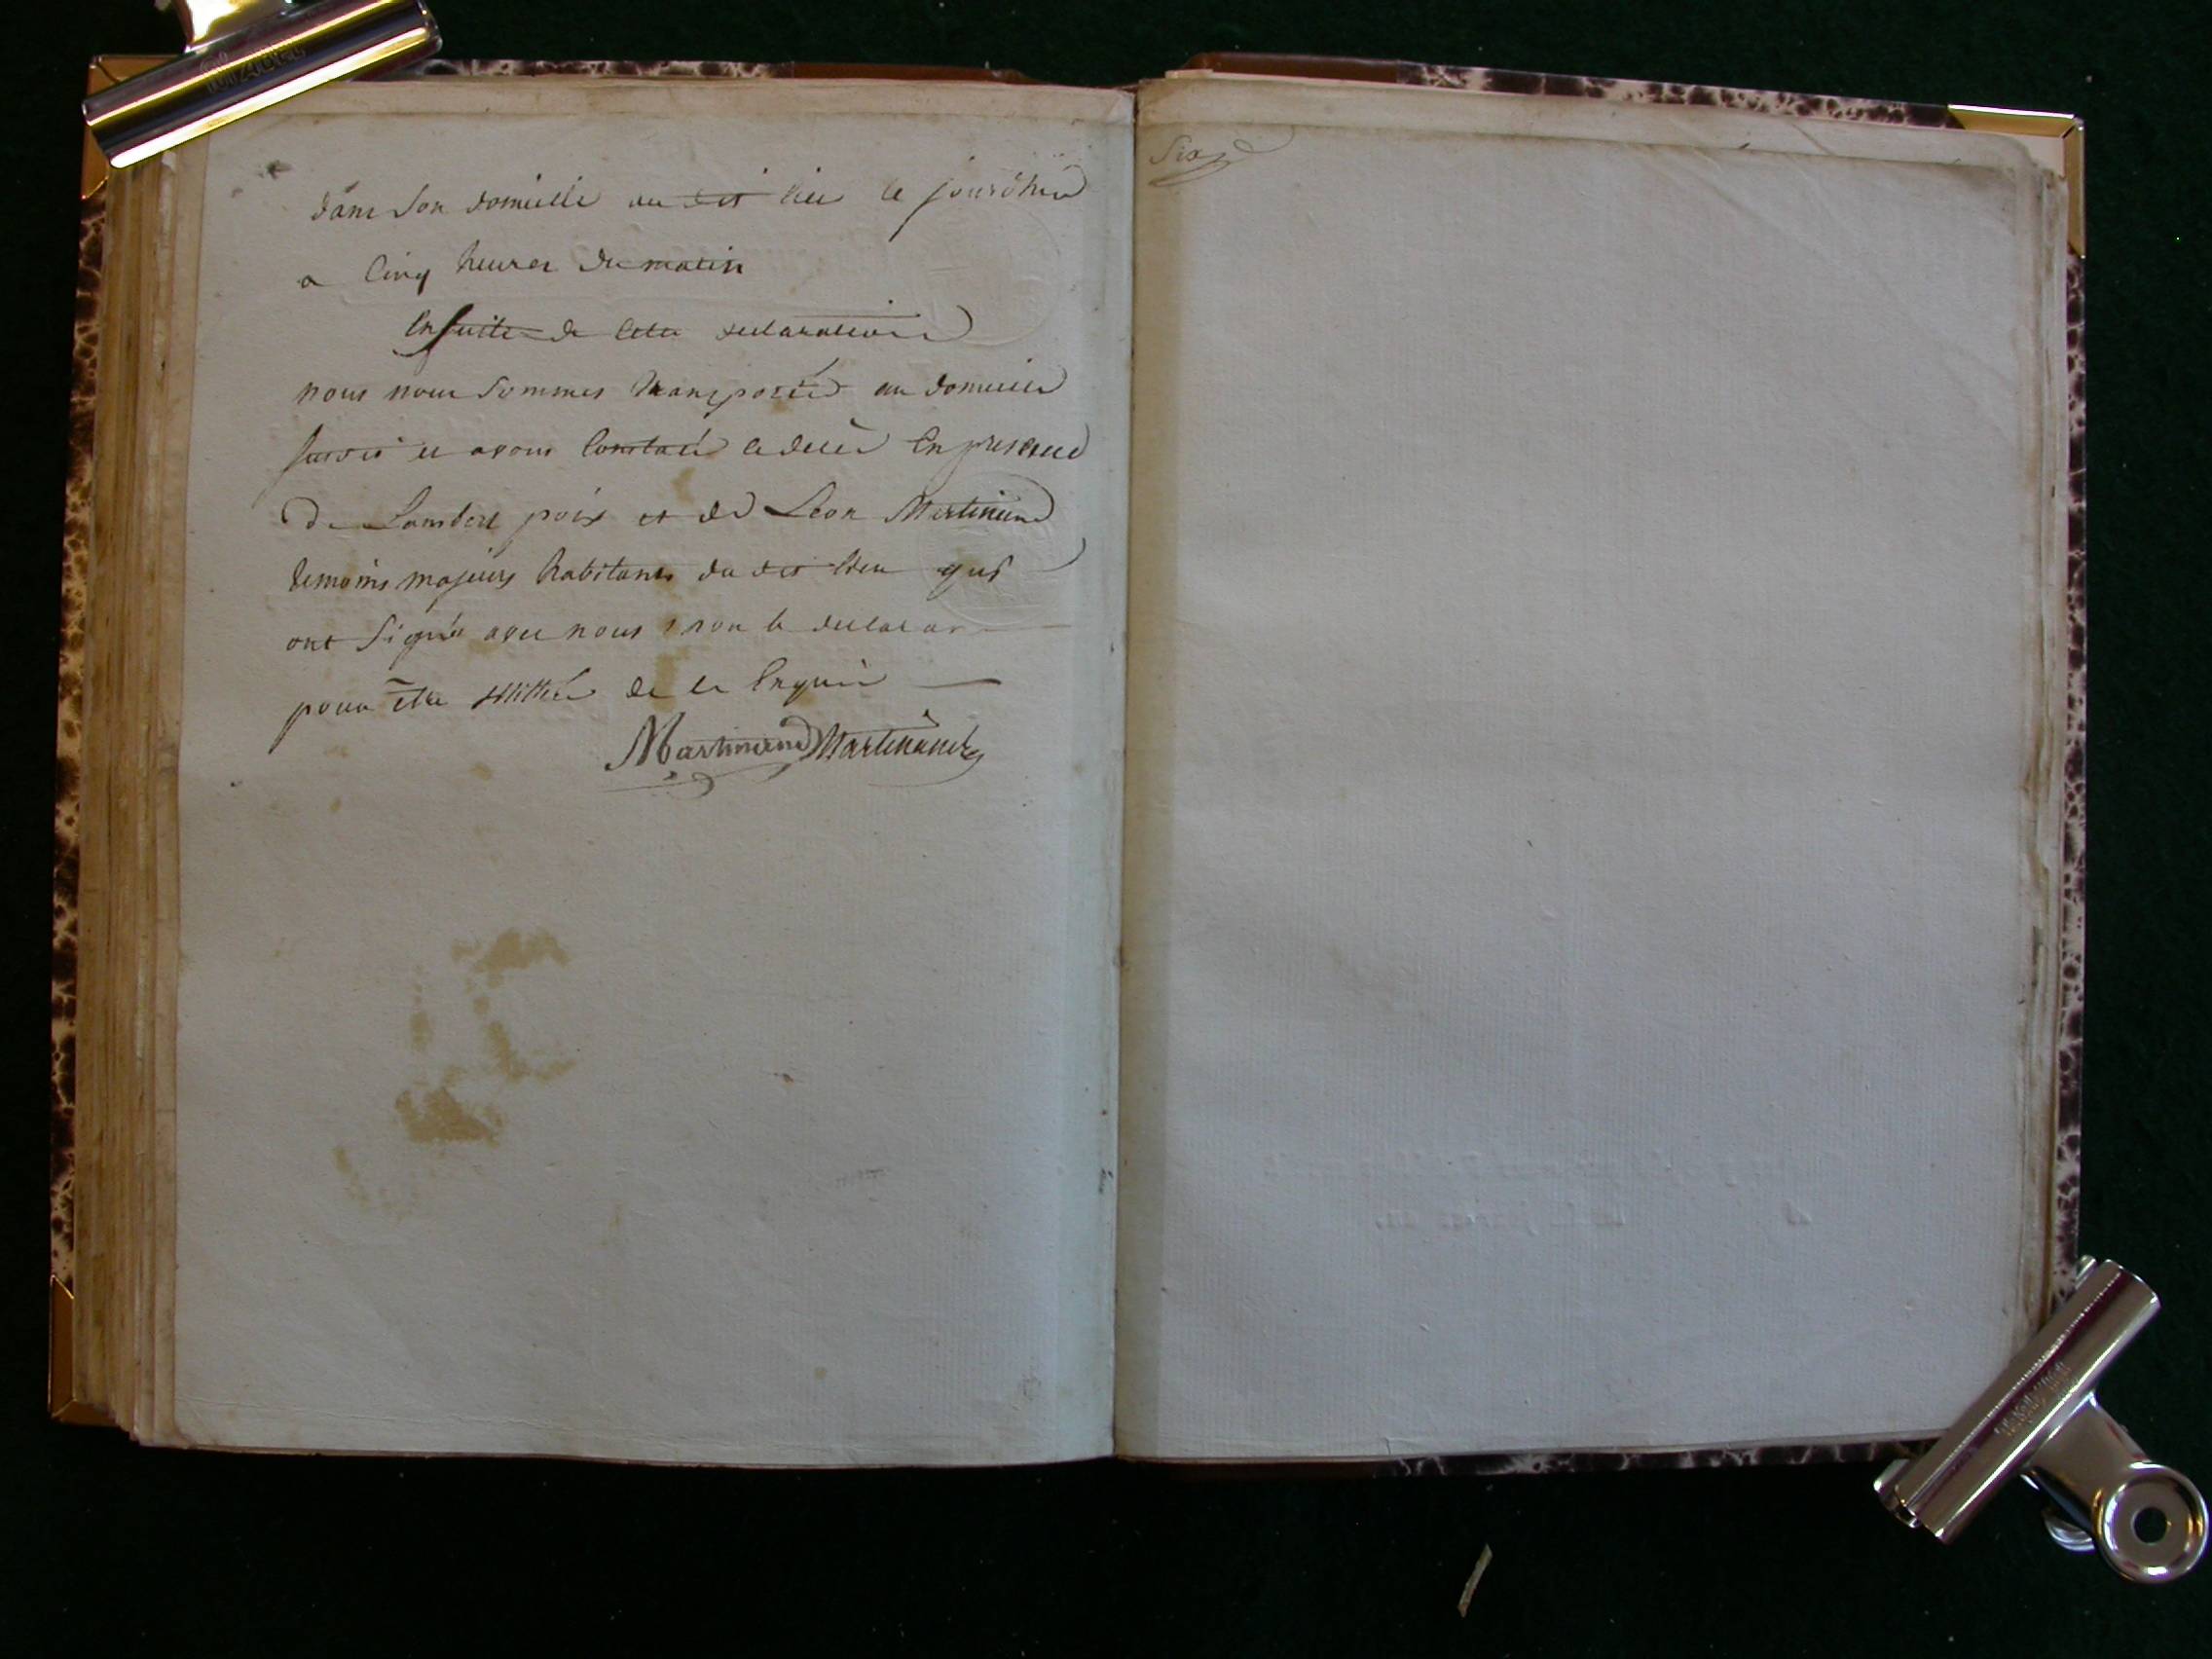 dans son domicille au dit lieu le jourdhui
a Cinq heures du matin
Ensuite de cette declaration
nous nous sommes transportés au domicile
susdit et avons Constaté le decès En presence
de Lambert poix et de Léon Martinend
temoins majeurs habitants du dit lieu qui
ont signés avec nous non le declarar
pour être illitteré de ce Enquis
Martinend Martinend
Six